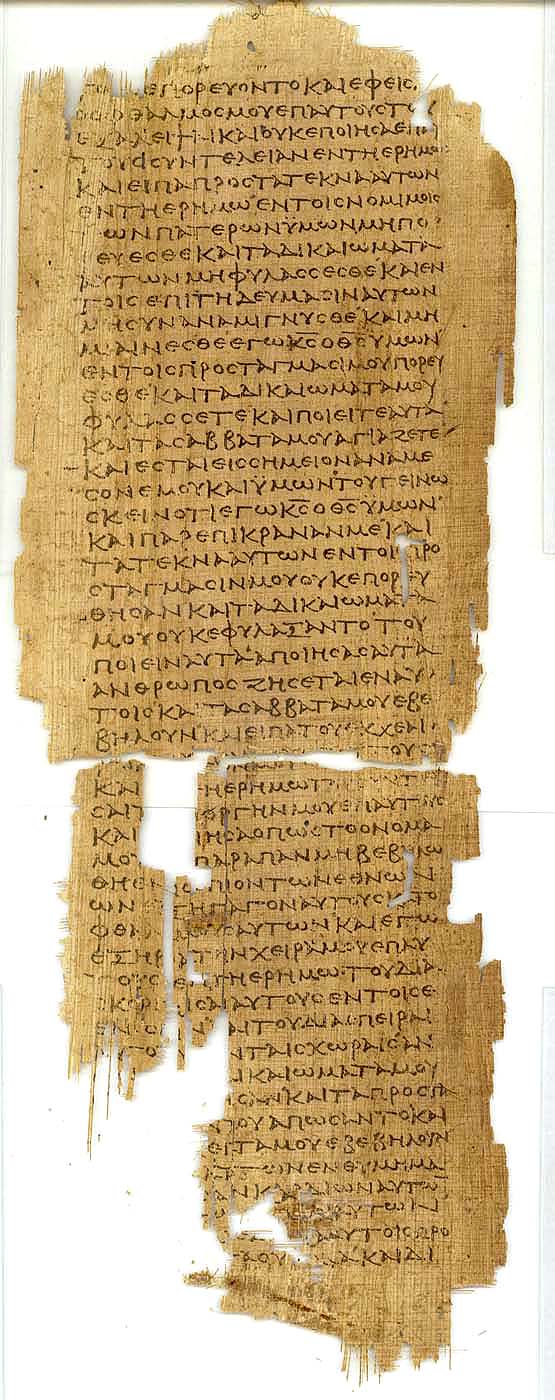 ΕΠΟΡΕΥΟΝΤΟΚΑΙΕΦΕΙϹ
ΟΦΘΑΛΜΟϹΜΟΥΕΠΑΥΤΟΥϹΤΟΥ
ΕΞΑΛΕΙΨΑΙΚΑΙΟΥΚΕΠΟΙΗϹΑΕΙϹ
ΤΟΥϹϹΥΝΤΕΛΕΙΑΝΕΝΤΗΕΡΗΜΩ
ΚΑΙΕΙΠΑΠΡΟϹΤΑΤΕΚΝΑΑΥΤΩΝ
ΕΝΤΗΕΡΗΜΩΕΝΤΟΙϹΝΟΜΙΜΟΙϹ
ΤΩΝΠΑΤΕΡΩΝΫΜΩΝΜΗΠΟ
ΕΥΕϹΘΕΚΑΙΤΑΔΙΚΑΙΩΜΑΤΑ
ΑΥΤΩΝΜΗΦΥΛΑϹϹΕϹΘΕΚΑΙΕΝ
ΤΟΙϹΕΠΙΤΗΔΕΥΜΑϹΙΝΑΥΤΩΝ
ΜΗϹΥΝΑΝΑΜΙΓΝΥϹΘΕΚΑΙΜΗ
ΜΙΑΙΝΕϹΘΕΕΓΩΚ̅Ϲ̅ΟΘ̅Ϲ̅ΥΜΩΝ
ΕΝΤΟΙϹΠΡΟϹΤΑΓΜΑϹΙΜΟΥΠΟΡΕΥ
ΕϹΘΕΚΑΙΤΑΔΙΚΑΙΩΜΑΤΑΜΟΥ
ΦΥΛΑϹϹΕΤΕΚΑΙΠΟΙΕΙΤΕΑΥΤΑ
ΚΑΙΤΑϹΑΒΒΑΤΑΜΟΥΑΓΙΑΖΕΤΕ
ΚΑΙΕϹΤΑΙΕΙϹϹΗΜΕΙΟΝΑΝΑΜΕ
ϹΟΝΕΜΟΥΚΑΙΫΜΩΝΤΟΥΓΕΙΝΩ
ϹΚΕΙΝΟΤΙΕΓΩΚ̅Ϲ̅ΟΘ̅Ϲ̅ΥΜΩΝ
ΚΑΙΠΑΡΕΠΙΚΡΑΝΑΝΜΕΚΑΙ
ΤΑΤΕΚΝΑΑΥΤΩΝΕΝΤΟΙϹΠΡΟ
ϹΤΑΓΜΑϹΙΝΜΟΥΟΥΚΕΠΟΡΕΥ
ΘΗϹΑΝΚΑΙΤΑΔΙΚΑΙΩΜΑΤΑ
ΜΟΥΟΥΚΕΦΥΛΑΞΑΝΤΟΤΟΥ
ΠΟΙΕΙΝΑΥΤΑΑΠΟΙΗϹΑϹΑΥΤΑ
ΑΝΘΡΩΠΟϹΖΗϹΕΤΑΙΕΝΑΥ
ΤΟΙϹΚΑΙΤΑϹΑΒΒΑΤΑΜΟΥΕΒΕ
ΒΗΛΟΥΝΚΑΙΕΙΠΑΤΟΥΕΚΧΕΑΙ
ΤΟΥϹ
ΚΑΙ ΗΕΡΗΜΩ
ϹΑΙΤ ΟΡΓΗΝΜΟΥΕΠΑΥΤΟΥϹ
ΚΑΙ ΗϹΑΟΠΩϹΤΟΟΝΟΜΑ
ΜΟΥ ΠΑΡΑΠΑΝΜΗΒΕΒΗΛΩ
ΘΗΕΝ ΠΙΟΝΤΩΝΕΘΝΩΝ
ΩΝΕ ΞΗΓΑΓΟΝΑΥΤΟΥϹΚΑΤΟ
ΦΘΑ ΑΥΤΩΝΚΑΙΕΓΩ
ΕΞΗΡΑΤΗΝΧΕΙΡΑΜΟΥΕΠΑΥ
ΤΟΥϹΕΝΤΗΕΡΗΜΩΤΟΥΔΙΑ
ϹΚΟΡΠΙϹΑΙΑΥΤΟΥϹΕΝΤΟΙϹΕ
ΑΙΤΟΥΔΙΑϹΠΕΙΡΑΙ
ΝΤΑΙϹΧΩΡΑΙϹΑΝ
ΙΚΑΙΩΜΑΤΑΜΟΥ
ϹΑΝΚΑΙΤΑΠΡΟϹΤΑ
ΜΟΥΑΠΩϹΑΝΤΟΚΑΙ
ΤΑΜΟΥΕΒΕΒΗΛΟΥΝ
ΩΝΕΝΘΥΜΗΜΑ
ΑΝΚΑΡΔΙΩΝΑΥΤΩ
ΑΥΤΩΝ
ΑΥΤΟΙϹΠΡΟ